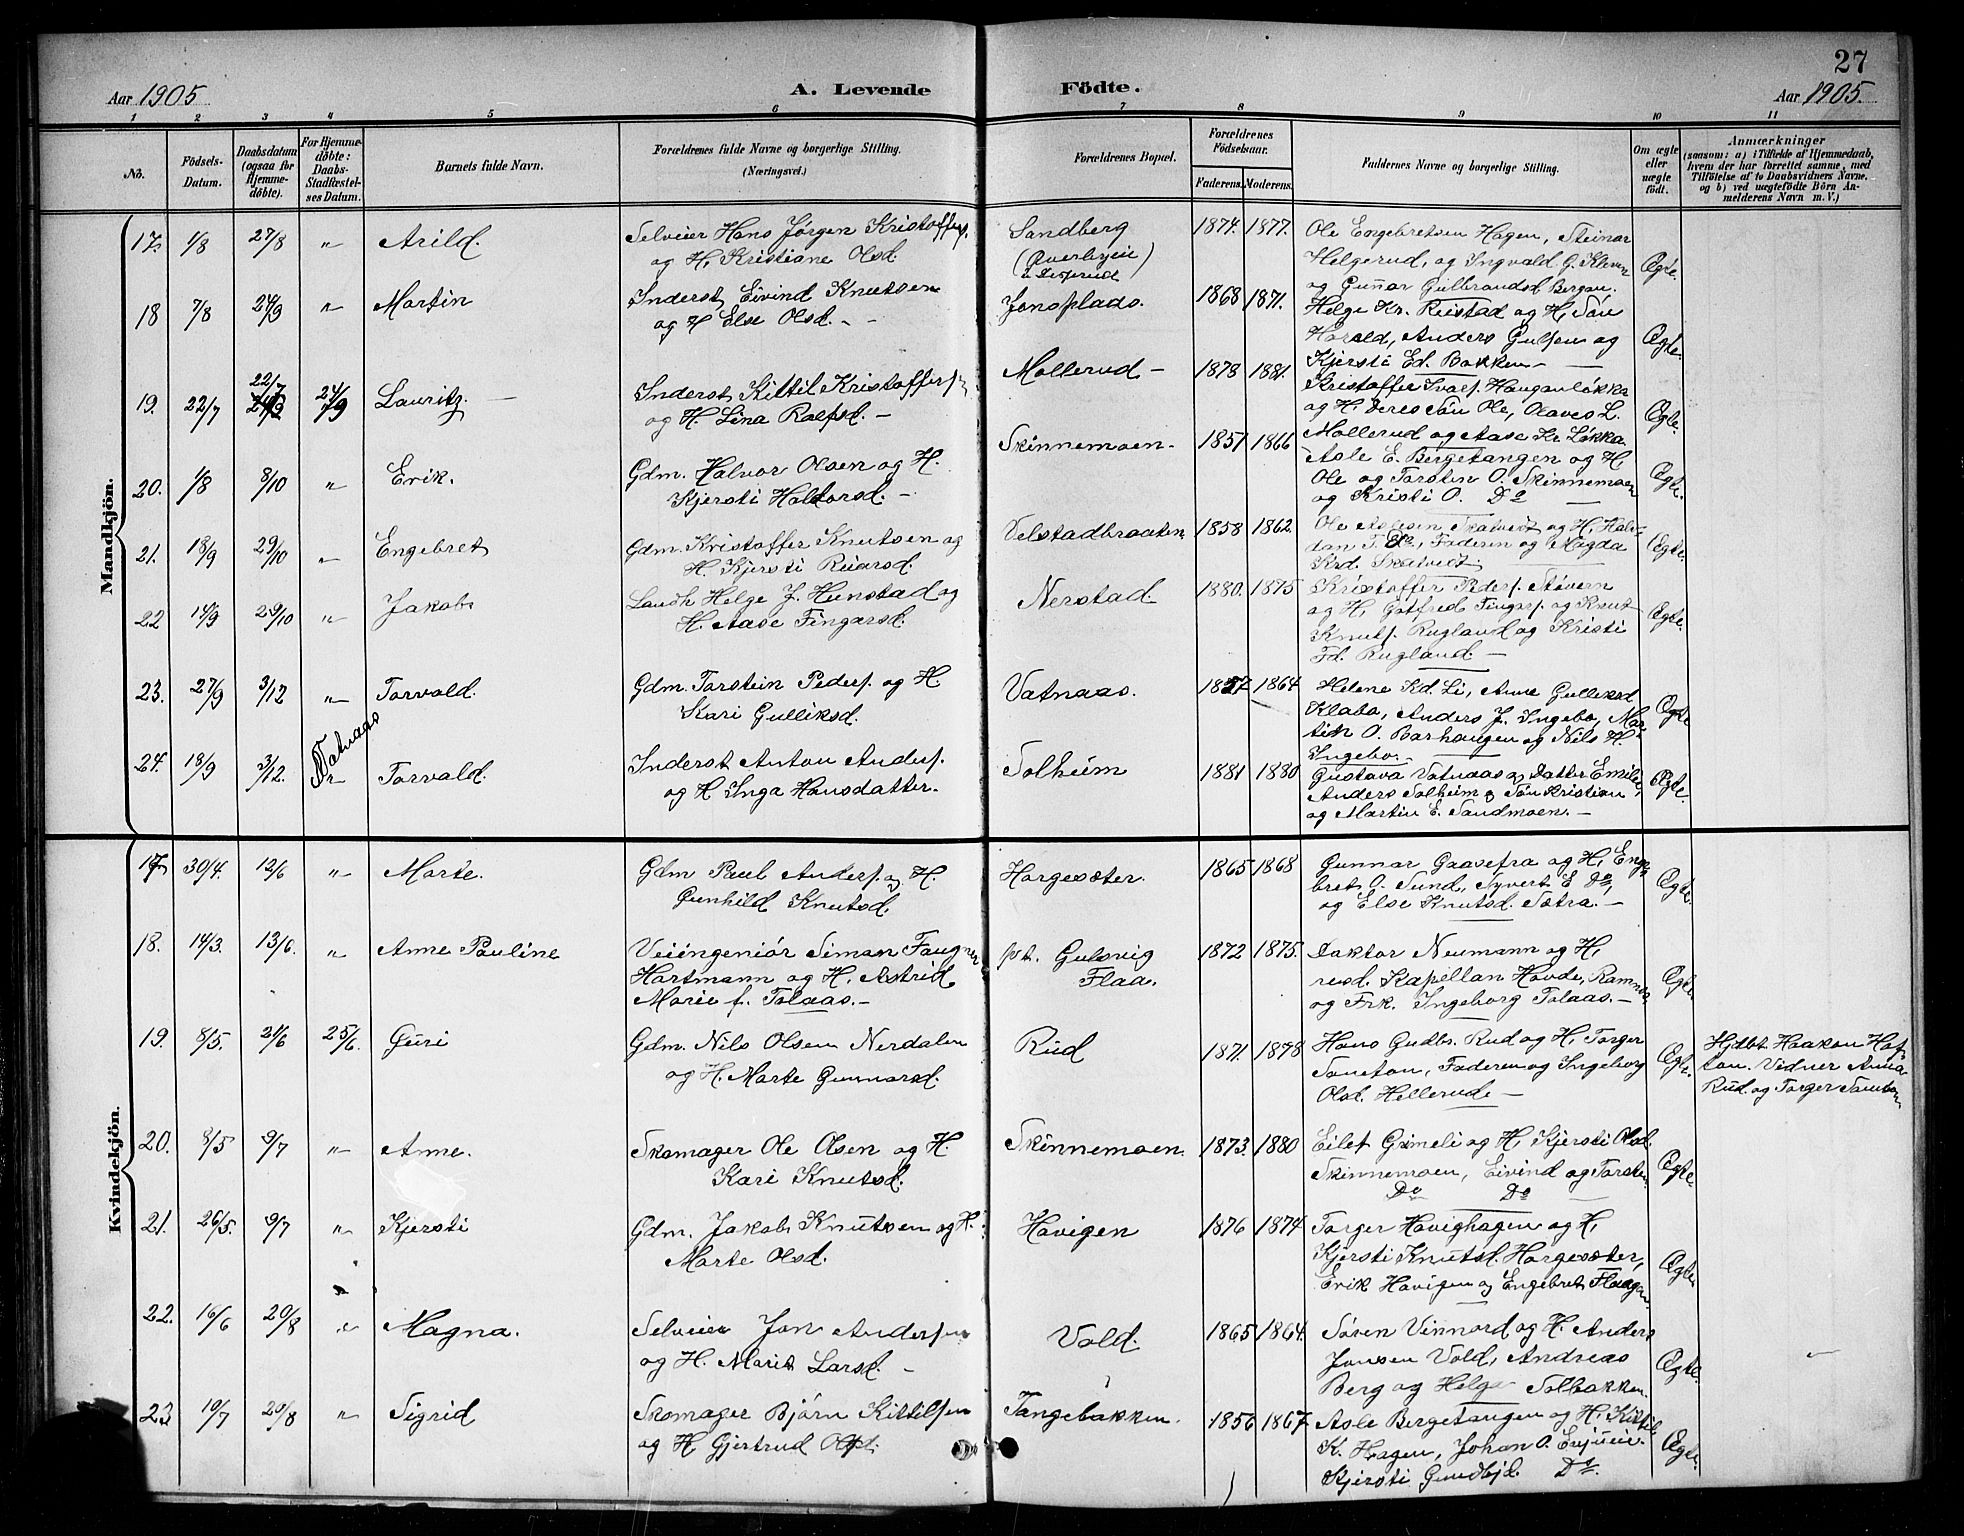 27
Aar 1905
A. Levende
Födte.
Aar 1905.
1 2 3 4 5 6 7 8 9 10 11
No.
Födsels-Datum.
Daabsdatum (ogsaa for Hjemme-döbte).
For Hjemme-döbte: Daabs-Stadfæstel-ses Datum.
Barnets fulde Navn.
Forældrenes fulde Navne og borgerlige Stilling.
(Næringsvei.)
Forældrenes Bopæl.
Forældrenes Födselsaar.
Faderens. Moderens.
Faddernes Navne og borgerlige Stilling.
Om ægte eller uægte födt.
Anmærkninger
(saasom: a) i Tilfælde af Hjemmedaab,
hvem der har forrettet samme, med
Tilföielse af to Daabsvidners Navne,
og b) ved uægtefödte Börn An-
melderens Navn m. V.)
Mandkjön.
17. 1/8 27/8 " Arild. Selveier Hans Jørgen Kristoffers. Sandberg 1874. 1877. Ole Engebretsen Hagen, Steinar
og H. Kristiane Olsd. (Averbyeie Helgerud, og Ingvald G. Kleven Ægte.
og Gunnar Gulbrands. Bergan.
18 7/8 24/9 " Martin Inderst Eivind Knutsen Jonsplads. 1868 1871. Helge Kr. Rustad og H, Søn
og H Else Olsd. - Harald, Anders Gulsen og Ægte.
Kjersti Ed. Bakken -
19. 22/7 22/7 24/9 24/9 Lauritz. Inderst Kittil Kristoffers. Møllerud - 1878 1881. Kristoffer Svars. Hauganløkka
og H. Lina Rolfsd. - og H. Deres Søn Ole, Olaves L. Ægte.
Møllerud og Aase Kr Løkka
20. 1/8 8/10 " Erik. Gdm. Halvor Olsen og H. Skinnemoen - 1851 1866 Asle E. Bergetangen og H
Kjersti Haldorsd. - Ole og Torsten O. Skinnemoen Ægte.
og Kristi O. Do
21. 18/9 29/10 " Engebret Gdm. Kristoffer Knutsen og Velstadbraaten 1858 1862. Ole Aslesen Skatvedt og H, Hal-
H. Kjersti Reiersd. dan T. Do, Faderen og Magda Ægte.
Krd. Skatvedt.
22 14/9 29/10 " Jakob Landh Helge J. Hunstad og Nerstad. 1880. 1875 Kristoffer Peders. Støvern
H. Aase Fingarsd. og H, Gotfred Fingars. og Knut Ægte.
Knuts. Rugland og Kristi
Fd. Rugland. -
23. 27/9 3/12 " Torvald. Gdm. Torstein Peders. og H. Vatnaas. 1857. 1864 Helene Kd. Li, Anne Gulliksd
Kari Gulliksd. Klabo, Anders J. Ingebo, Mar- Ægte
tin O. Barhaugen og Nils H.
Ingebo. -
Vatnaas
24. 18/9 3/12. Torvald. Inderst Anton Anders. Solheim 1881 1880 Gustava Vatnaas og Datter Emilie,
og H Inga Hansdatter. Anders Solheim og Søn Kristian Ægte.
og Martin E. Sandmoen. -
Kvindekjön.
17 30/4. 12/6 " Marte. Gdm Paul Anders. og H. Horgesæter. 1865 1868 Gunnar Gaasefra og H, Enge-
Gunhild Knutsd. bret O. Sund, Syvert E Do, Ægte.
og Else Knutsd. Sætra. -
18. 14/3. 13/6. " Anne Pauline Veiingeniør Simon Faugner pt. Gulsvig 1872 1875. Doktor Neumann og H,
Hartmann og H, Astrid Flaa. resd. Kapellan Hovde, Ramnes Ægte.
Marie f. Tolaas. - og Frk. Ingeborg Tolaas. -
19. 8/5. 21/6 25/6. Guri Gdm. Nils Olsen Nerdalen Rud 1871. 1878 Hans Gudbr. Rud og H, Torger Hjdbt. Haakon Hof-
og H. Marte Gunnarsd. Tometon, Faderen og Ingeborg Ægte. ton. Vidner Anna
Olsd. Hellerude - Rud og Torger
20. 8/5 9/7 " Anne. Skomager Ole Olsen og H. Skinnemoen. 1873. 1880 Eilet Grimeli og H, Kjersti Olsd.
Kari Knutsd. Skinnemoen, Eivind og Torsten Ægte
Do Do
21. 26/5. 9/7 " Kjersti Gdm. Jakob Knutsen og H. Havigen 1876 1874 Torger Havighagen og H,
Marte Olsd. Kjersti Knutsd. Horgesæter, Ægte
Erik Havigen og Engebret Flaagan
22. 16/6 20/8 " Magna. Selveier Jon Andersen Vold. 1865 1864. Søren Vinnord og H. Anders
og H. Marit Larsd. - Jonsen Vold, Andreas Ægte.
Berg og Helge Solbakken.
23 10/7 20/8 " Sigrid Skomager Bjørn Kittilsen Tangebakken. 1856 1867 Asle Bergetangen og H, Kittil
og H Gjertrud K. Hagen, Johan O. Enjueie. Ægte.
Kjersti Gundbjd. Do.